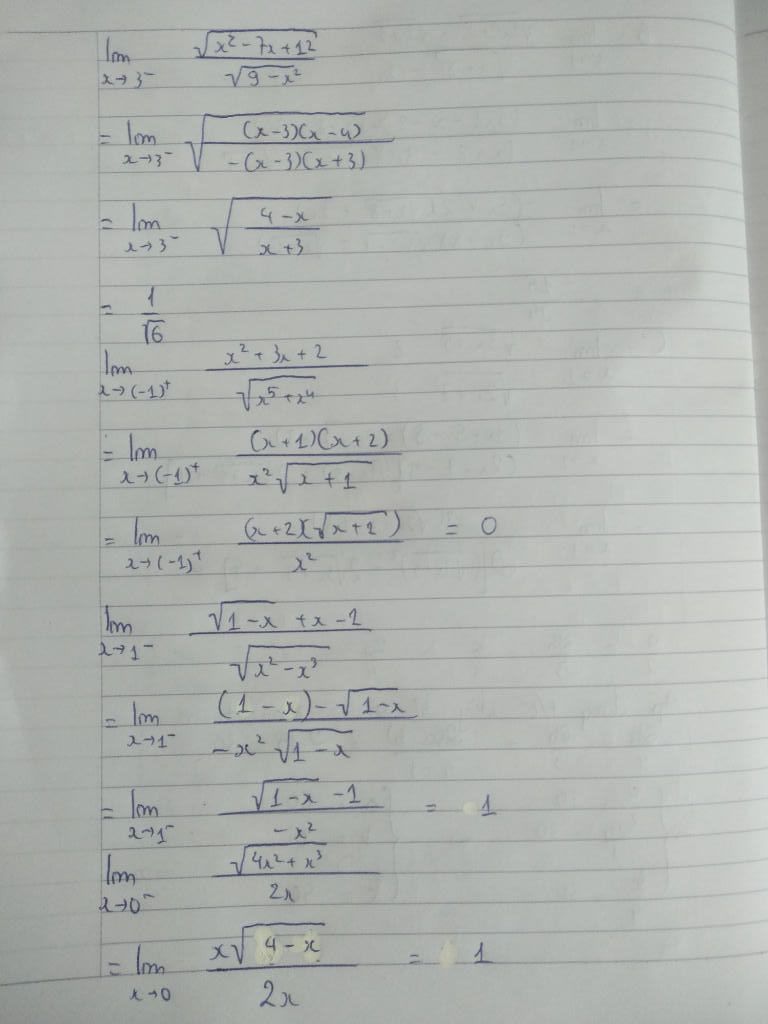 lim x→3⁻ √(x² - 7x + 12) / √(9 - x²)
= lim x→3⁻ √((x-3)(x-4) / -(x-3)(x+3))
= lim x→3⁻ √((4-x) / (x+3))
= 1/√6
lim x→(-1)⁺ (x² + 3x + 2) / √(x⁵ + x⁴)
= lim x→(-1)⁺ (x+1)(x+2) / x²√(x+1)
= lim x→(-1)⁺ (x+2)(√(x+1)) / x² = 0
lim x→1⁻ (√(1-x) + x - 1) / √(x² - x³)
= lim x→1⁻ ((1-x) - √(1-x)) / -x²√(1-x)
= lim x→1⁻ (√(1-x) - 1) / -x² = 1
lim x→0⁻ √(4x² + x³) / 2x
= lim x→0 x√(4-x) / 2x = 1